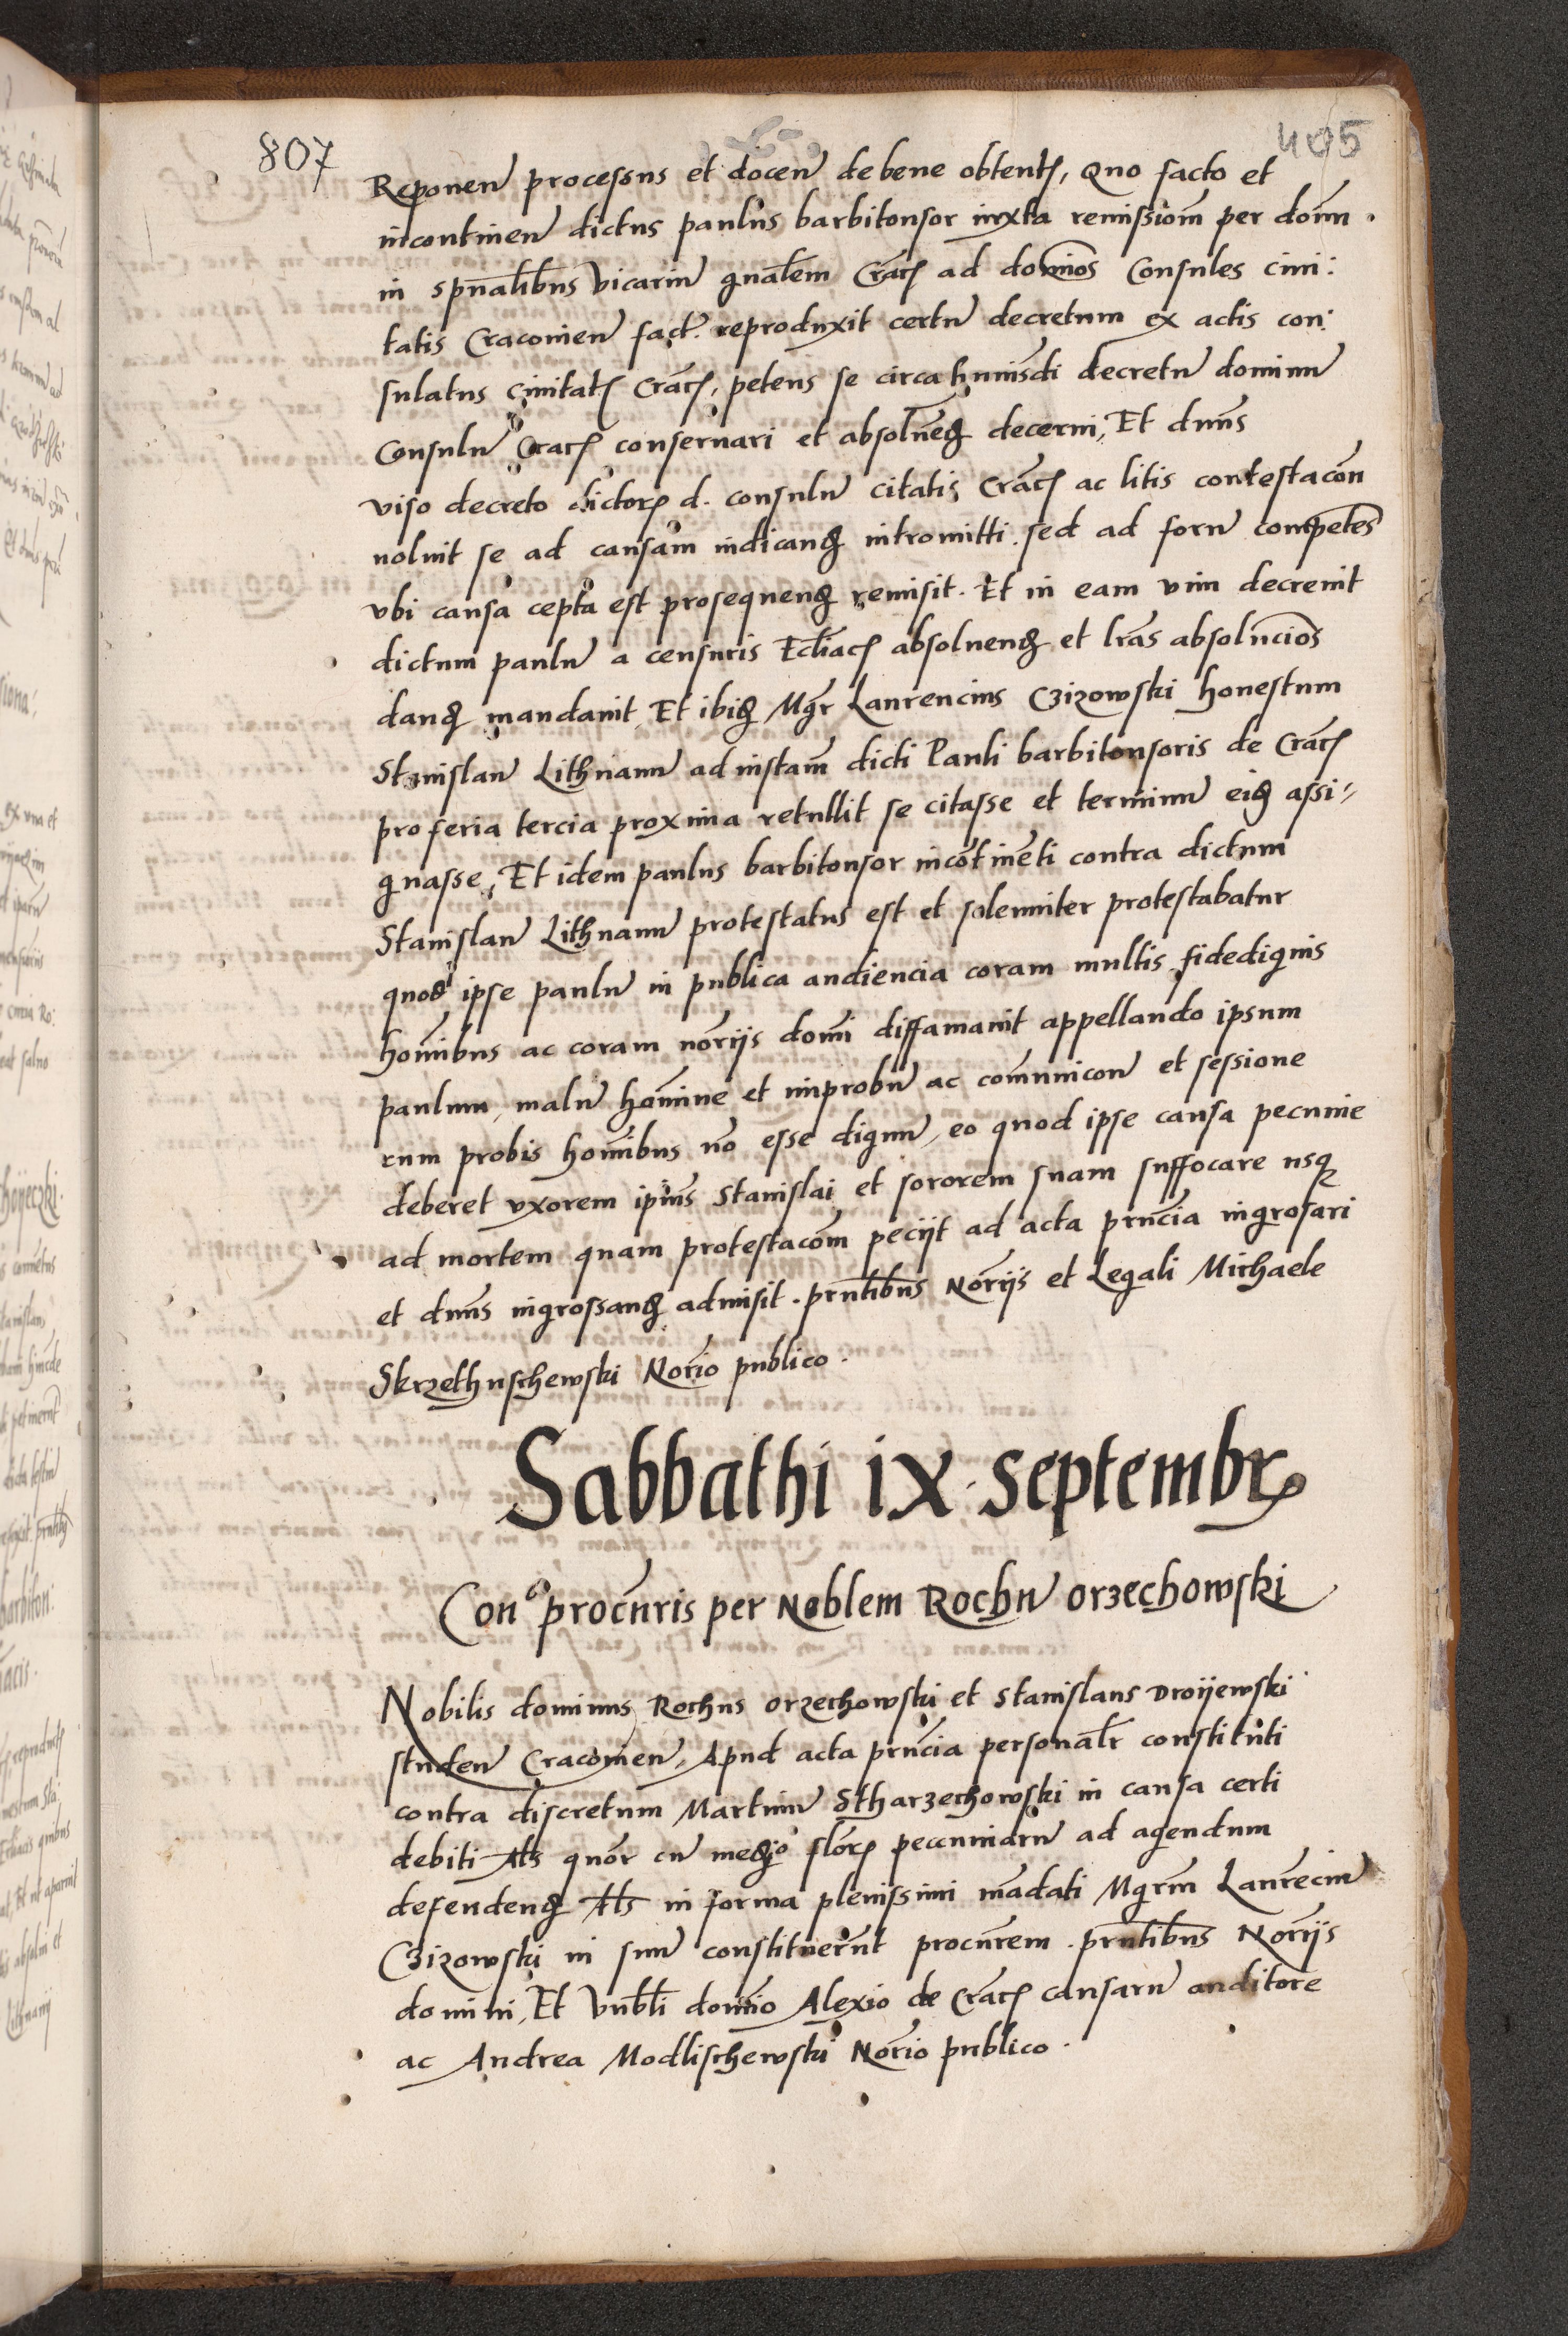 807
405
Reponen̄ processus et docen̄ de bene obtentꝭ, Quo facto et
incontinen̄ dictus paulus barbitonsor iuxta remissiōm per dom̄
in spūalibus vicarium gn̄alem Cracꝭ ad dominos Consules ciui:
tatis Cracouien̄ fact. reproduxit certū decretum ex actis con:
sulatus Ciuitatꝭ Cracꝭ, petens se circa huiusmōdi decretū dominū
Consulū Cracꝭ conseruari et absoluēd decerni, Et dn̄us
viso decreto dictorꝭ d. consulū citatis Cracꝭ ac litis contestacōn
noluit se ad causam iudicand̄ intromitti. sed ad forū competēs
vbi causa cepta est prosequend̄ remisit. Et in eam vim decreuit
dictum paulū a censuris Eccl̄iacꝭ absoluend̄ et lrās absoluciōs
dand̄ mandauit, Et ibid̄ Mgr̄ Laurencius Czizowski honestum
Stanislaū Lithuanū ad instam̄ dicti Pauli barbitonsoris de Cracꝭ
pro feria tercia proxima retullit se citasse et terminū eid̄ assi-
gnasse, Et idem paulus barbitonsor incōtinēti contra dictum
Stanislaū Lithuanū protestatus est et solenniter protestabatur
quod ipse paulū in publica audiencia coram multis fidedignis
hom̄ibus ac coram nōriis domī diffamauit appellando ipsum
paulum, malū hominē et improbū ac comunicon̄ et sessione
cum probis hom̄ibus nō esse dignū, eo quod ipse causa pecunie
deberet vxorem ipīus Stanislai et sororem suam suffocare usqꝫ
ad mortem quam protestacōm peciit ad acta prn̄cia ingrosari
et dn̄us ingrossand̄ admisit. prn̄tibus Nōriis et Legali Michaele
Skrzethuschewski Norīo publico.
Sabbathi ix septembrꝭ
Conᵒ procūris per Nobłem Rochū Orzechowski
Nobilis dominus Rochus Orzechowski et Stanislaus Droijewski
studen̄ Cracouien̄, Apud acta prn̄cia personałr constituti
contra discretum Martinū Stharzechowski in causa certi
debiti Ałs quōr cū medio florꝭ pecuniarū ad agendum
defendend̄ Ałs in forma plenissimi mādati Mgrm̄ Laurēciū
Czizowski in suū constituerūnt procūrem. prn̄tibus Nōriis
domini, Et Vnb̄li domīo Alexio de Cracꝭ causarū auditore
ac Andrea Modlischewski Norīo publico.